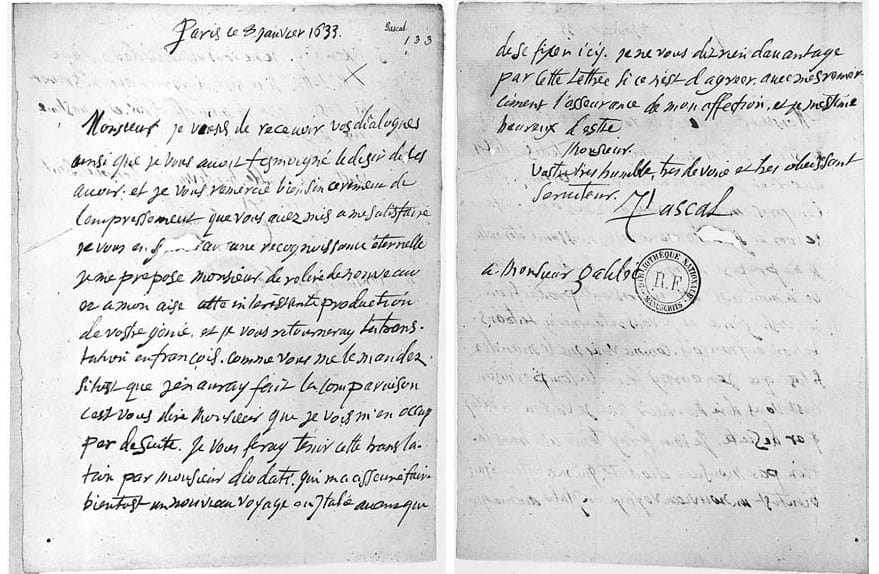 Paris ce 8 Janvier 1633.
Pascal
133
Monsieur je viens de recevoir vos dialogues
ainsi que je vous avoit tesmoigné le desir de les
avoir. et je vous remercie bien sincerement de
l'empressement que vous avez mis a me satisfaire
je vous en une recognoissance éternelle
je me propose monsieur de relire de nouveau
et a mon aise cette interessante production
de vostre genie. et je vous retourneray la trans-
lation en françois. comme vous me le mandez.
sitost que j'en auray fait la comparaison
c'est vous dire Monsieur que je vais m'en occup
per de suite. Je vous feray tenir cette transla-
tion par monsieur diodati. qui m'a asseuré faire
bientost un nouveau voyage en Italie avant que
de se fixer icy. je ne vous diz rien davantage
par cette lettre si ce n'est d'agreer avec mes remer-
ciment l'asseurance de mon affection. et je m'estime
heureux d'estre
Monsieur.
Vostre tres humble, tres devoué et tres obeissant
serviteur.
Pascal
a Monsieur galilée
BIBLIOTHÈQUE NATIONALE
R.F.
MANUSCRITS